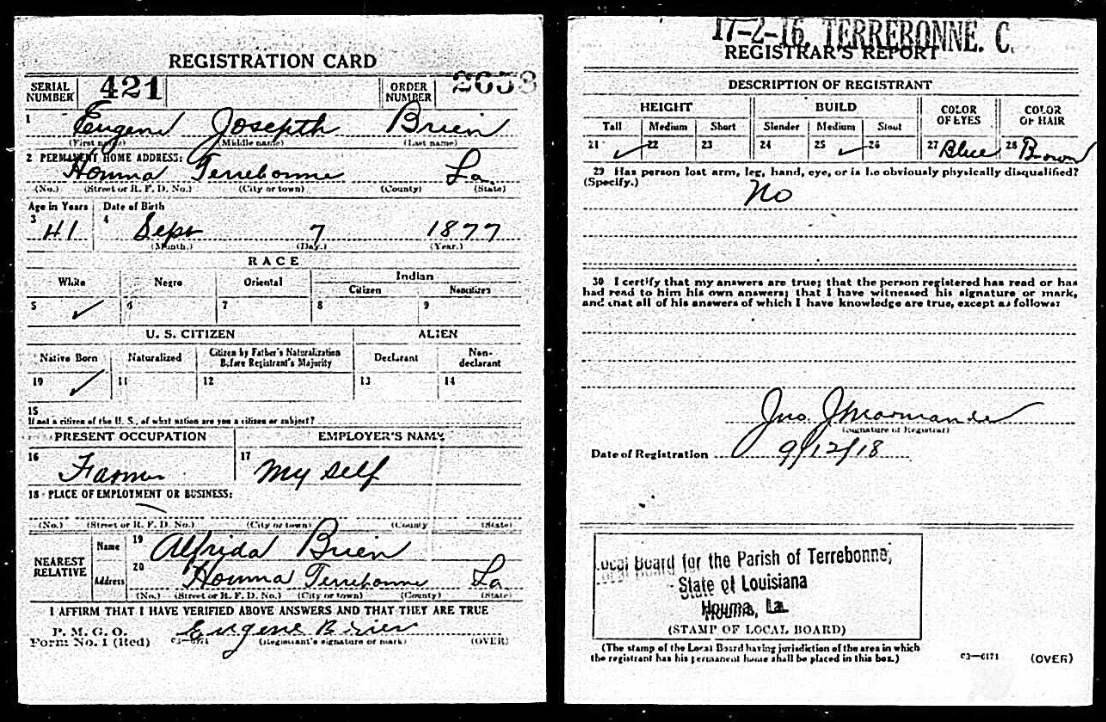 REGISTRATION CARD
SERIAL NUMBER 421 ORDER NUMBER 2658
1 Eugene Josepth Brien
(First name) (Middle name) (Last name)
2 PERMANENT HOME ADDRESS:
Houma Terrebonne La.
(No.) (Street or R. F. D. No.) (City or town) (County) (State)
Age in Years Date of Birth
3 41 4 Sept 7 1877
(Month.) (Day.) (Year.)
RACE
White Negro Oriental Indian
Citizen Noncitizen
5 ✓ 6 7 8 9
U. S. CITIZEN ALIEN
Native Born Naturalized Citizen by Father's Naturalization Before Registrant's Majority Declarant Non-declarant
10 ✓ 11 12 13 14
15
If not a citizen of the U. S., of what nation are you a citizen or subject?
PRESENT OCCUPATION EMPLOYER'S NAME
16 Farmer 17 My self
18 PLACE OF EMPLOYMENT OR BUSINESS:
(No.) (Street or R. F. D. No.) (City or town) (County) (State)
NEAREST RELATIVE Name 19 Alfrida Brien
Address 20 Houma Terrebonne La
(No.) (Street or R. F. D. No.) (City or town) (County) (State)
I AFFIRM THAT I HAVE VERIFIED ABOVE ANSWERS AND THAT THEY ARE TRUE
P. M. G. O.
Form No. 1 (Red) Eugene Brien
(Registrant's signature or mark) (OVER)
17-2-16, TERREBONNE. C.
REGISTRAR'S REPORT
DESCRIPTION OF REGISTRANT
HEIGHT BUILD COLOR OF EYES COLOR OF HAIR
Tall Medium Short Slender Medium Stout
21 ✓ 22 23 24 25 ✓ 26 27 Blue 28 Brown
29 Has person lost arm, leg, hand, eye, or is he obviously physically disqualified?
(Specify.) No
30 I certify that my answers are true; that the person registered has read or has
had read to him his own answers; that I have witnessed his signature or mark,
and that all of his answers of which I have knowledge are true, except as follows:
Jno. J Marmande
(Signature of Registrar)
Date of Registration 9/12/18
Local Board for the Parish of Terrebonne,
State of Louisiana
Houma, La.
(STAMP OF LOCAL BOARD)
(The stamp of the Local Board having jurisdiction of the area in which
the registrant has his permanent home shall be placed in this box.)
03—6171 (OVER)